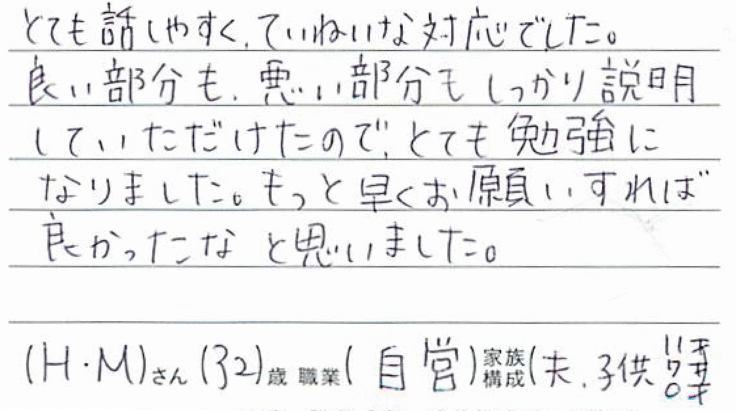 とても話しやすく、ていねいな対応でした。
良い部分も、悪い部分もしっかり説明
していただけたので、とても勉強に
なりました。もっと早くお願いすれば
良かったこな と思いました。
(H・M)さん(32)歳 職業(自営)家族構成(夫、子供 11才 7才 0才